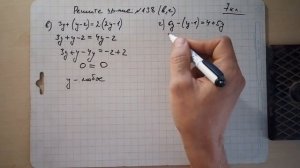 Решите ур-ние №138 (в,г)
7 кл.
в) 3y + (y-2) = 2(2y-1)
3y + y - 2 = 4y - 2
3y + y - 4y = -2 + 2
0 = 0
y - любое
г) 6y - (y-1) = 4 + 5y